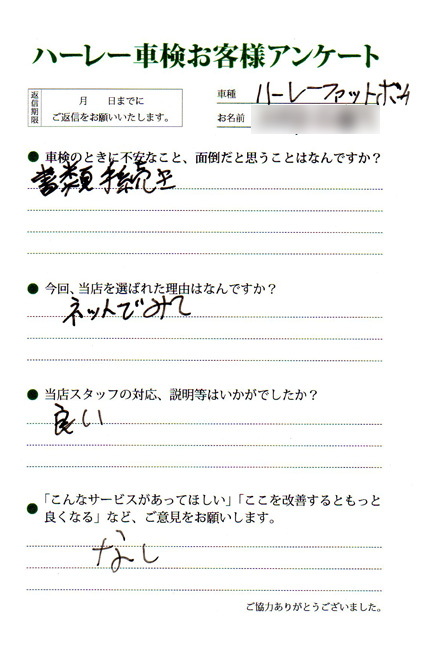 ハーレー車検お客様アンケート
返信期限
月　　日までに
ご返信をお願いいたします。
車種 ハーレーファットボーイ
お名前
● 車検のときに不安なこと、面倒だと思うことはなんですか？
書類手続き
● 今回、当店を選ばれた理由はなんですか？
ネットでみて
● 当店スタッフの対応、説明等はいかがでしたか？
良い
● 「こんなサービスがあってほしい」「ここを改善するともっと
良くなる」など、ご意見をお願いします。
なし
ご協力ありがとうございました。